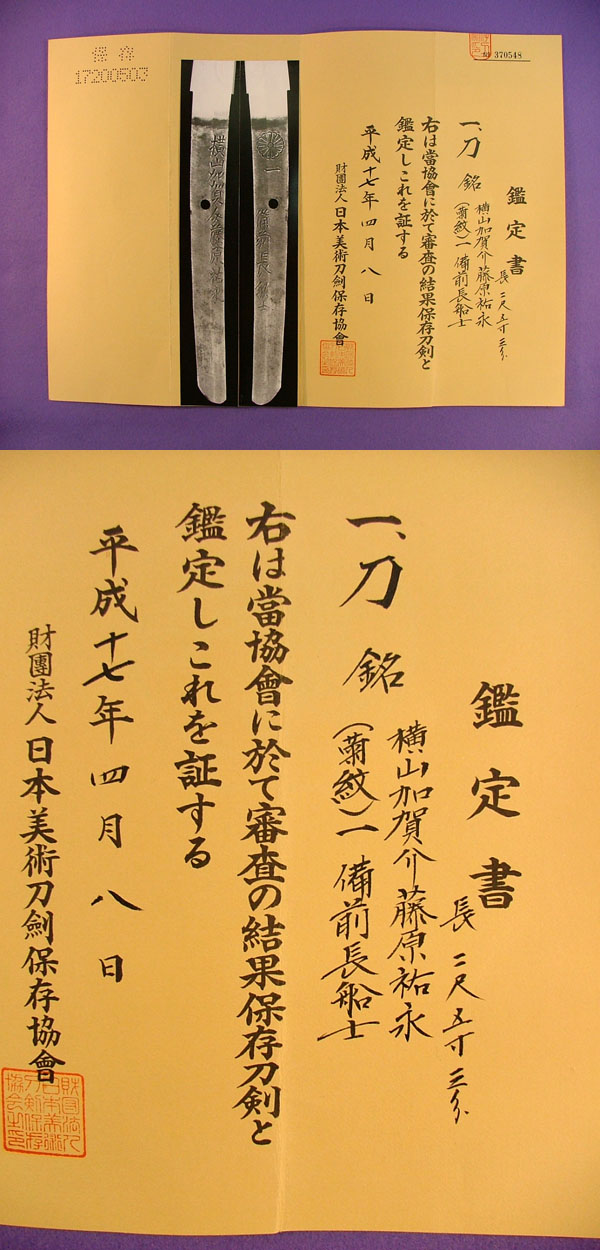 保存
17200503
No 370548
鑑定書
長二尺五寸三分
一、刀 銘 横山加賀介藤原祐永
(菊紋)一 備前長船士
右は當協會に於て審査の結果保存刀剣と
鑑定しこれを証する
平成十七年四月八日
財團法人日本美術刀劍保存協會
横山加賀介藤原祐永
一
備前長船士
鑑定書
長二尺五寸三分
一、刀 銘 横山加賀介藤原祐永
(菊紋)一 備前長船士
右は當協會に於て審査の結果保存刀剣と
鑑定しこれを証する
平成十七年四月八日
財團法人日本美術刀劍保存協會